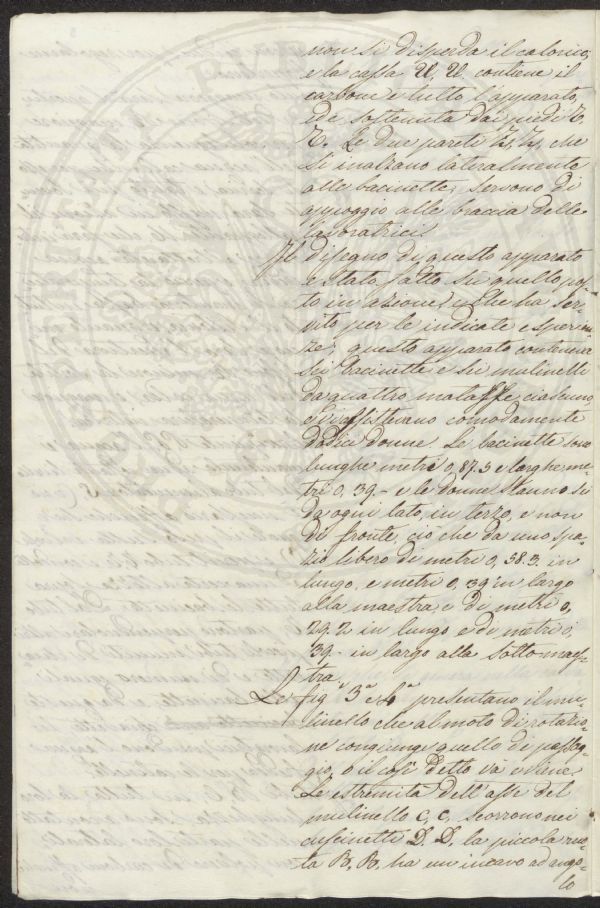 non si disperda il calorico,
e la cassa U, U. contiene il
carbone e tutto l'apparato,
ed è sostenuta dai piedi Z,
Z. Le due pareti che
si inalzano lateralmente
alle bacinette, servono di
appoggio alle braccia delle
lavoratrici.
Il disegno di questo apparato
è stato fatto su quello pos-
to in azione, e che ha ser-
vito per le indicate esperien-
ze; questo apparato conteneva
sei bacinette e sei mulinelli
da quattro matasse ciascuno,
e vi assistevano comodamente
dodici donne. Le bacinette sono
lunghe metri 0,87.5 e larghe me-
tri 0,39.- e le donne stanno si
da ogni lato, in terzo, e non
di fronte, ciò che da uno spa-
zio libero di metri 0,58.3. in
lungo, e metri 0,39 in largo
alla maestra, e di metri 0,
29.2 in lungo e di metri 0,
39.- in largo alla sottomaes-
tra.
Le fig.e 3a e 4a presentano il mu-
linello che al moto di rotazio-
ne congiunge quello di passag-
gio, o il così detto và e viene.
Le estremità dell'asse del
mulinello C, C, scorrono nei
cuscinetti D. D, la piccola ruo-
ta B. B. ha un incavo ad ango-
lo